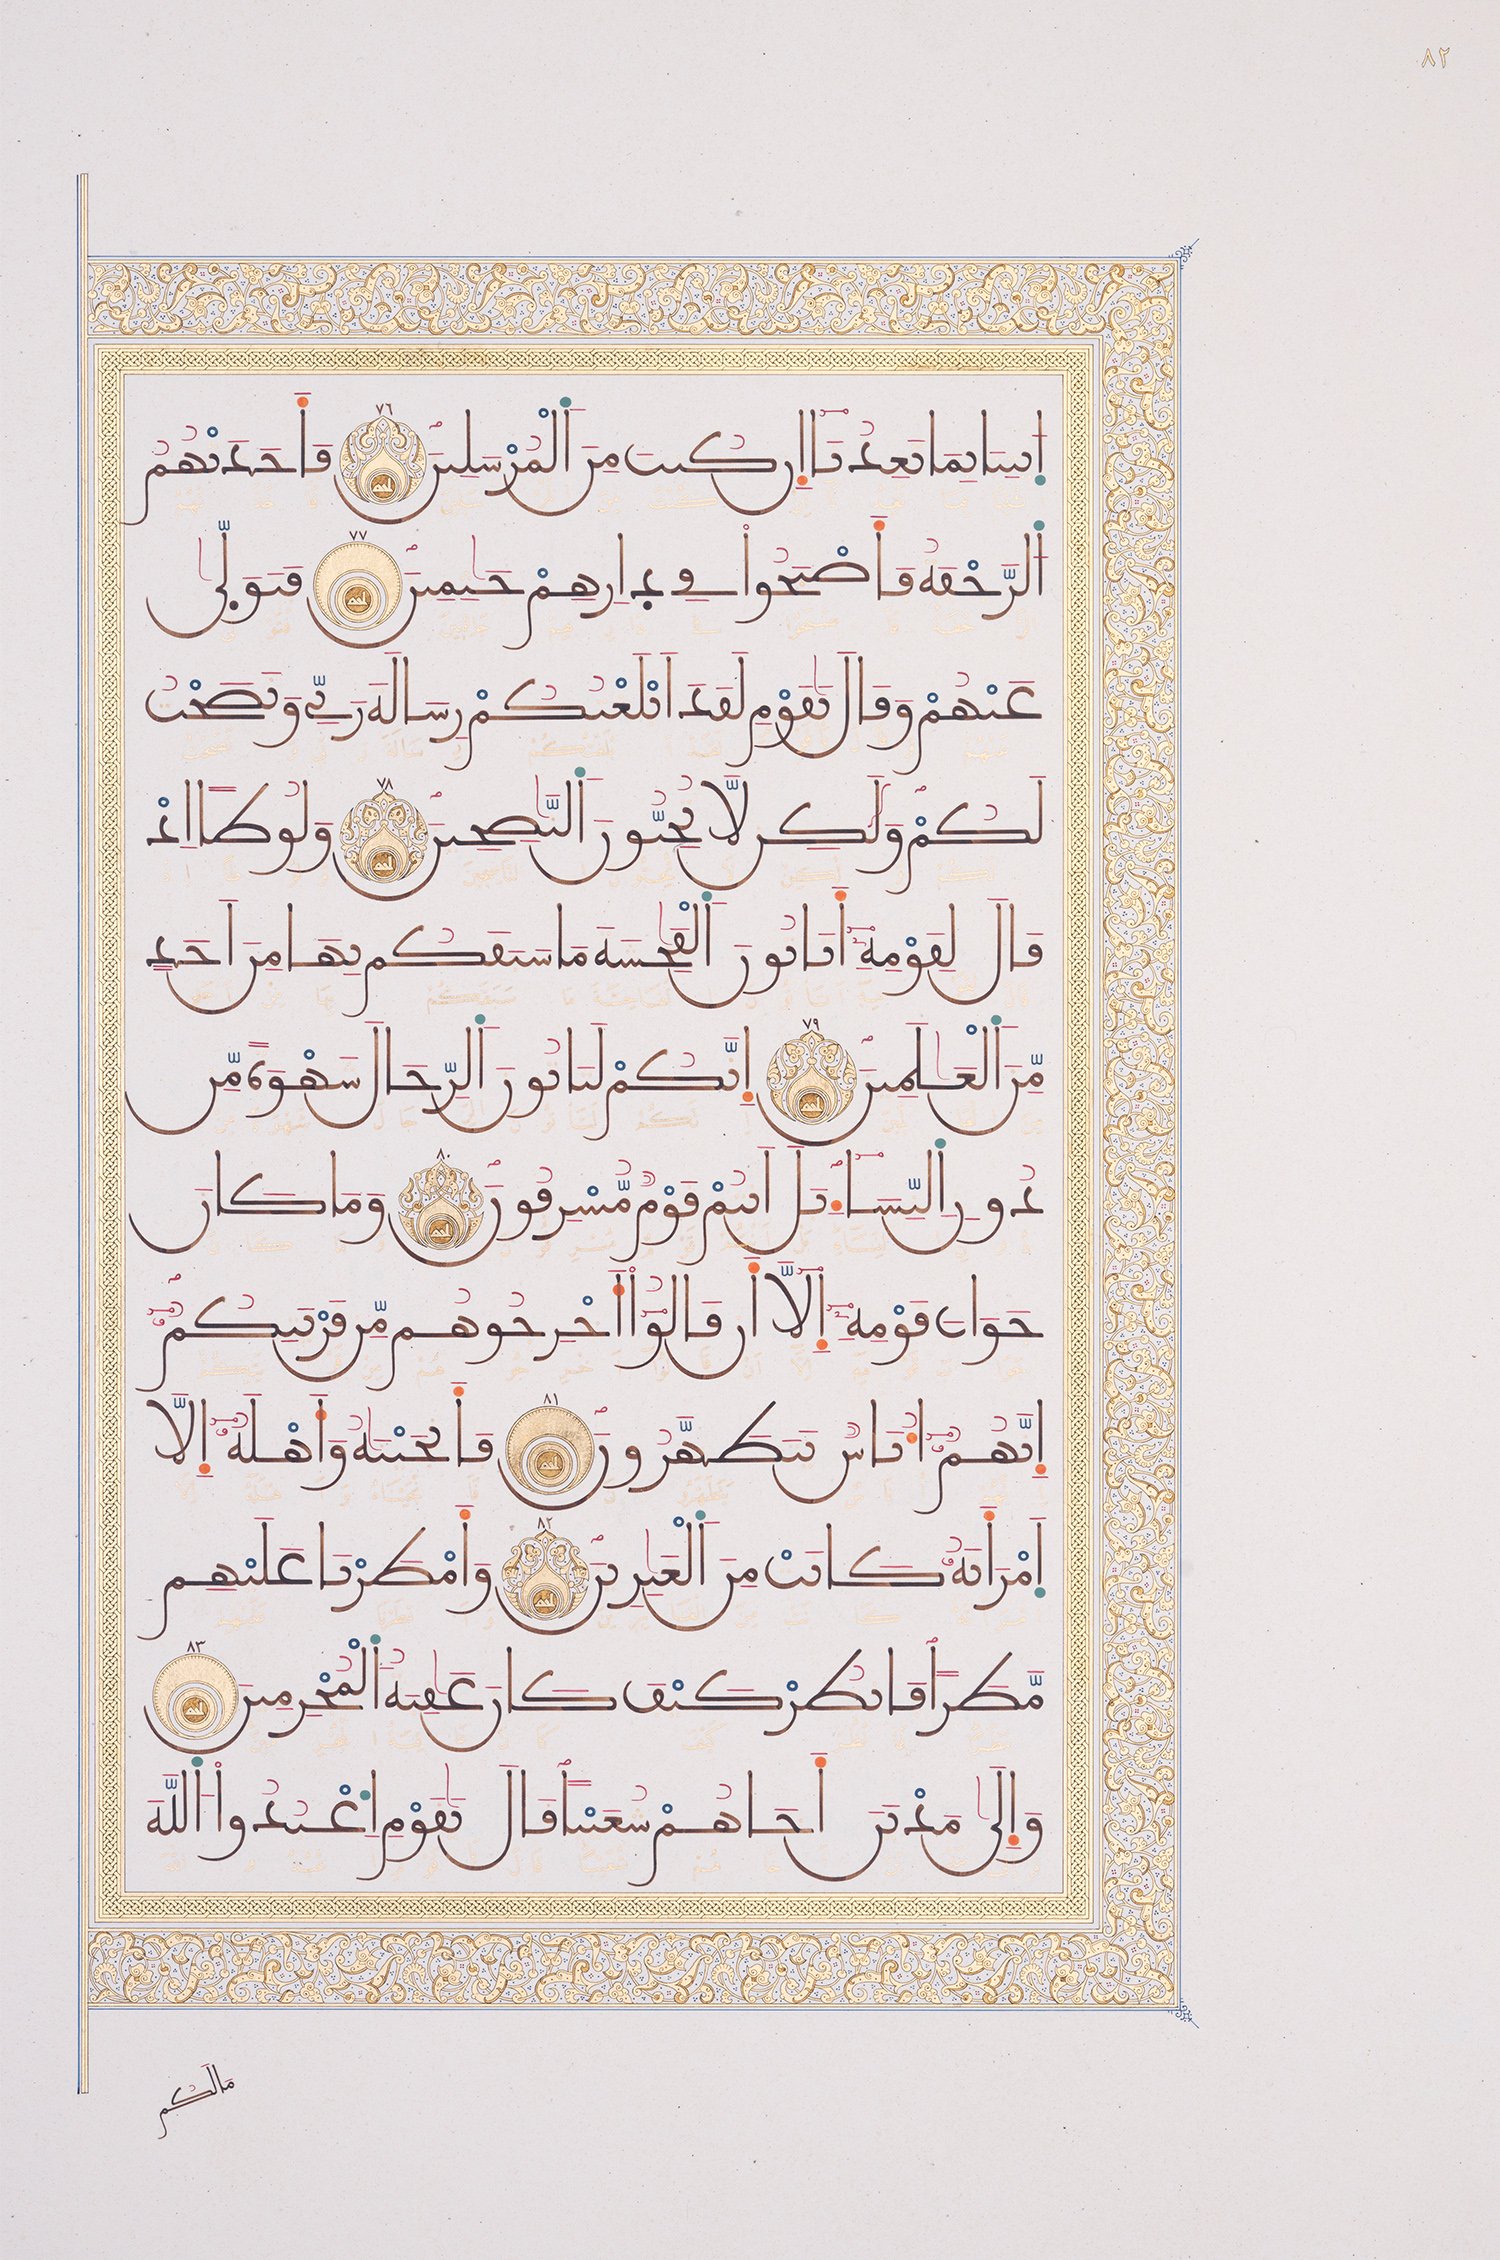 ٨٢
اِيتِنَا بِمَا تَعِدُنَآ إِن كُنتَ مِنَ اَ۬لْمُرْسَلِينَ ٧٦ فَأَخَذَتْهُمُ
اُ۬لرَّجْفَةُ فَأَصْبَحُوا۟ فِے دِارِهِمْ جَٰثِمِينَ ٧٧ فَتَوَلّ۪ىٰ
عَنْهُمْ وَقَالَ يَٰقَوْمِ لَقَدَ اَبْلَغْتُكُمْ رِسَالَةَ رَبِّے وَنَصَحْتُ
لَكُمْ وَلَٰكِن لَّا تُحِبُّونَ اَ۬لنَّٰصِحِينَ ٧٨ وَلُوطًا اِذْ
قَالَ لِقَوْمِهِۦٓ أَتَاتُونَ اَ۬لْفَٰحِشَةَ مَا سَبَقَكُم بِهَا مِنَ اَحَدٍ
مِّنَ اَ۬لْعَٰلَمِينَ ٧٩ إِنَّكُمْ لَتَاتُونَ اَ۬لرِّجَالَ شَهْوَةً مِّن
دُونِ اِ۬لنِّسَآءِ بَلَ اَنتُمْ قَوْمٌ مُّسْرِفُونَ ٨٠ وَمَا كَانَ
جَوَابَ قَوْمِهِۦٓ إِلَّآ أَن قَالُوٓا۟ أَخْرِجُوهُم مِّن قَرْيَتِكُمُۥٓ
إِنَّهُمُۥٓ أُنَاسٌ يَتَطَهَّرُونَ ٨١ فَأَنجَيْنَٰهُ وَأَهْلَهُۥٓ إِلَّا
اَ۪مْرَأَتَهُۥ كَانَتْ مِنَ اَ۬لْغَٰبِرِينَ ٨٢ وَأَمْطَرْنَا عَلَيْهِم
مَّطَرًا فَانظُرْ كَيْفَ كَانَ عَٰقِبَةُ اُ۬لْمُجْرِمِينَ ٨٣
وَإِلَىٰ مَدْيَنَ أَخَاهُمْ شُعَيْبًا قَالَ يَٰقَوْمِ اِ۟عْبُدُوا۟ اُ۬للَّهَ
مَا لَكُم